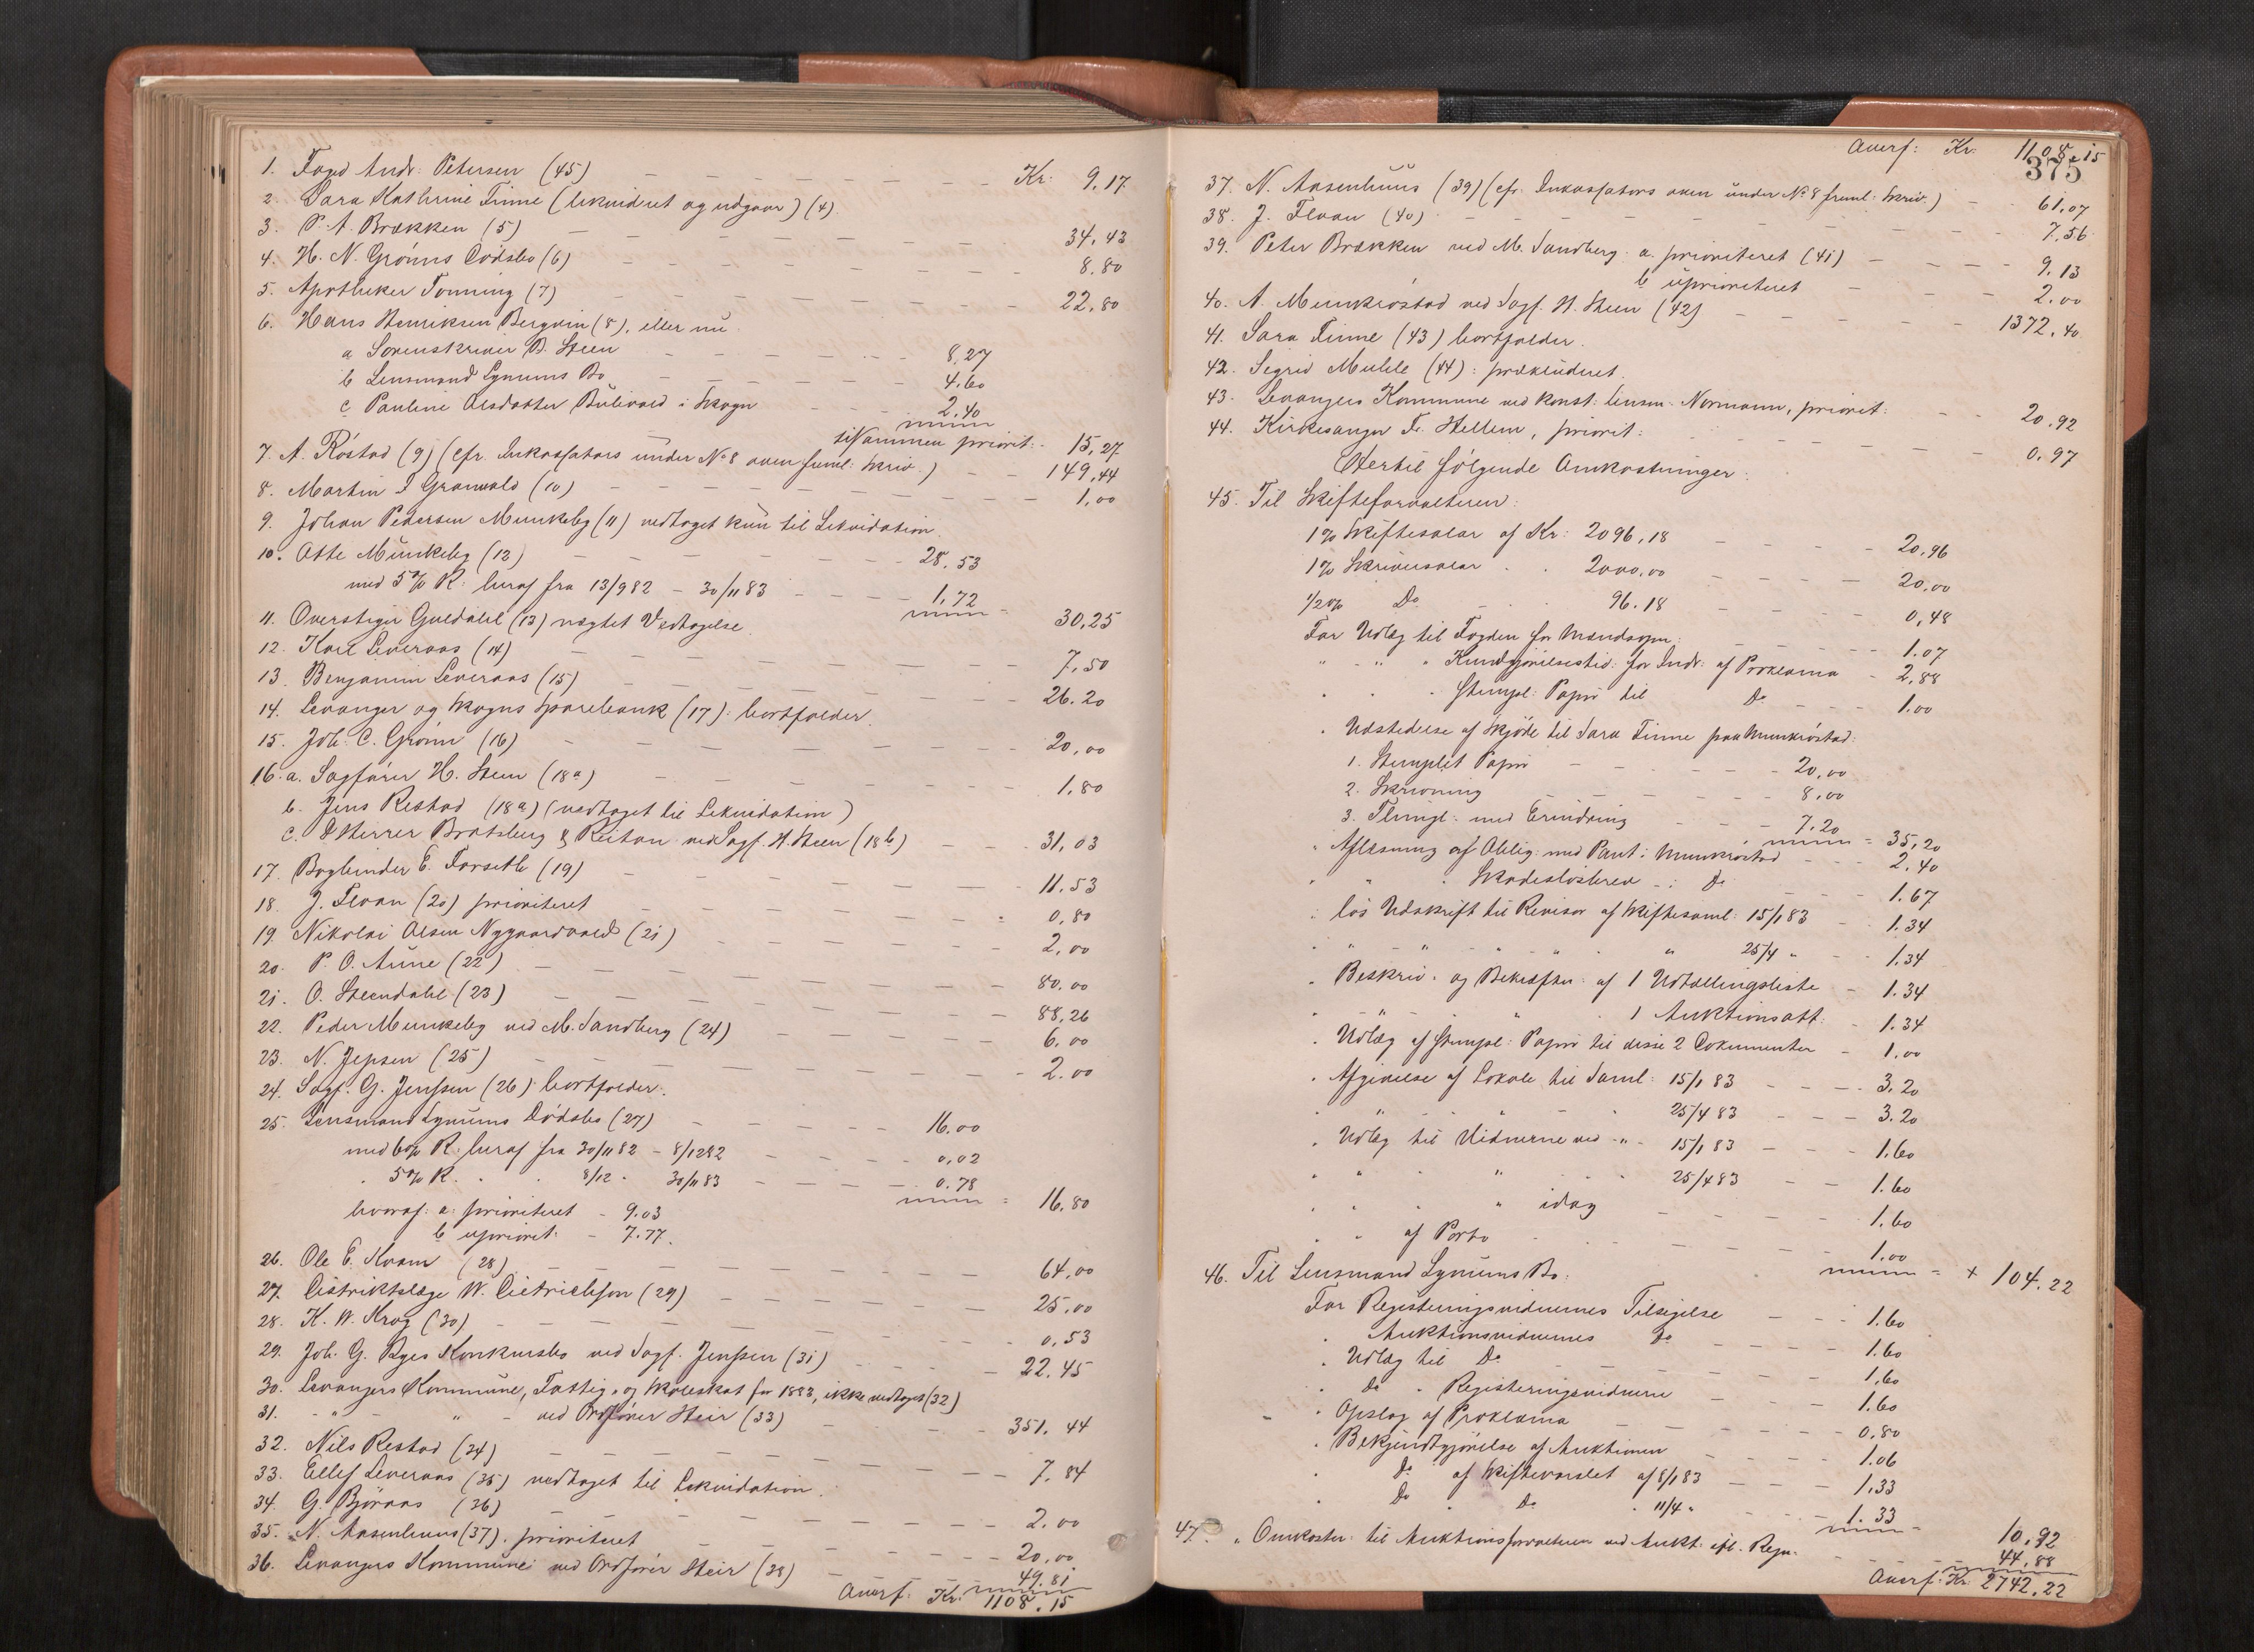 1. Foged Andr: Petersen (45) Kr: 9,17
2. Sara Kathrine Finne (likvideret og udgaar) (4)
3. P. A. Brækken (5) 34,43
4. H. N. Grønns Dødsbo (6) 8,80
5. Apotheker Tonning (7) 22,80
6. Hans Henriksen Bergvin (8), eller nu
a Sorenskriver B. Steen 8,27
b Lensmand Lynums Bo 4.60
c Pauline Olsdatter Bulivold i Skogn 2,40
tilsammen priorit: 15,27
7. A. Røstad (9) (cfr. Inkassators under No 8 oven freml: Skriv.) 149,44
8. Martin I Granvold (10) 1,00
9. Johan Pedersen Munkeby (11) vedtaget kun til Likvidation
10. Otte Munkeby (12) 28.53
med 5% R: heraf fra 13/9 82 - 30/11 83 1,72
30,25
11. Overstiger Guldahl (13) nægtet Vedtagelse
12. Karl Leveraas (14) 7,50
13. Benjamin Leveraas (15) 26.20
14. Levanger og Skogns Sparebank (17): bortfalder.
15. Joh: C. Grønn (16) 20,00
16. a. Sagfører H. Steen (18a) 1,80
b. Jens Restad (18a) (vedtaget til Likvidation)
c. D'Herrer Bratsberg & Reitan ved Sagf. H. Steen (18b) 31,03
17. Bogbinder E. Forseth (19) 11.53
18. J. Floan (20) prioriteret 0,80
19. Nikolai Olsen Nygaardvold (21) 2,00
20. P. O. Aune (22) 80.00
21. O. Steendahl (23) 88,26
22. Peder Munkeby ved M. Sandberg (24) 6.00
23. N. Jepsen (25) 2.00
24. Sagf. G. Jenssen (26): bortfalder.
25. Lensmand Lynums Dødsbo (27) 16.00
med 6% R: heraf fra 30/11 82 - 8/12 82 0,02
" 5% R. " " 8/12 " 30/11 83 0.78
16,80
hvoraf: a: prioriteret - 9.03
b uprioret: - 7.77.
26. Ole E. Kvam (28) 64,00
27. Distriktslæge W. Dietrichson (29) 25,00
28. K. W. Krog (30) 0,53
29. Joh. G. Ryes Konkursbo ved Sagf. Jenssen (31) 22.45
30. Levangers Kommune, Fattig- og Skoleskat for 1883, ikke vedtaget (32)
31. - " - " - ved Ordfører Heir (33) 351.44
32. Nils Restad (34) 7,84
33. Ellef Leveraas (35) vedtaget til Likvidation.
34. G. Bjøraas (36) 2.00
35. N. Aasenhuus (37). prioriteret 20,00
36. Levangers Kommune ved Ordfører Heir (38) 49.81
Overf: Kr: 1108.15
Overf: Kr: 1108,15
375
37. N. Aasenhuus (39) (cfr. Inkassators oven under No 8 freml: Skriv.) 61,07
38. J. Floan (40) 7,56
39. Peter Brækken ved M. Sandberg: a. prioriteret (41) 9.13
b uprioriteret 2.00
40. A. Munkrøstad ved Sagf. H. Steen (42) 1372,40
41. Sara Finne (43) bortfalder.
42. Segrid Muhle (44): prækluderet.
43. Levangers Kommune ved konst: Lensm. Normann, priorit: 20,92
44. Kirkesanger Fr. Hellem, priorit: 0.97
Hertil følgende Omkostninger:
45. Til Skifteforvalteren:
1% Skiftesalar af Kr: 2096,18 20,96
1% Skriversalar " " 2000,00 20,00
1/2% Do - " 96.18 0,48
For Udlæg til Fogden for Mandsopn: 1.07
" - " " Kundgjørelsestid: for Indr: af Proklama 2,88
" " " Stempl: Papir til Do 1.00
" Udstedelse af Skjøde til Sara Finne paa Munkrøstad:
1. Stemplet Papir 20,00
2. Skrivning 8,00
3. Thingl: med Erindring 7.20
35,20
" Aflæsning af Oblig: med Pant i Munkrøstad 2.40
" " " Skadesløsbrev - i Do 1.67
" løs Udskrift til Revisor af Skiftesaml: 15/1 83 1.34
" " - " - " - " " " 25/4 " 1.34
" Beskriv: og Bekræfter: af 1 Udtællingsliste 1.34
" " - " " 1 Auktionsatt: 1.34
" Udlæg af Stempl: Papir til disse 2 Dokumenter 1.00
" Afgivelse af Lokale til Saml: 15/1 83 3.20
" " - - " - " 25/4 83 3.20
" Udlæg til Vidnerne ved -"- 15/1 83 1.60
" " " " " 25/4 83 1.60
" " " " idag 1.60
" " af Porto 1.00
+ 104.22
46. Til Lensmand Lynums Bo:
For Registeringsvidnernes Tilsigelse 1.60
" Auktionsvidnernes Do 1.60
" Udlæg til Do 1,60
" Do " Registeringsvidnerne 1.60
" Opslag af Proklama 0,80
" Bekjendtgjørelse af Auktionen 1.06
" Do af Skiftevarslet af 8/1 83 1,33
" Do " Do " 11/4 " 1.33
10,92
47. " Omkoster: til Auktionsforvalteren ved Aukt: ifl. Regn. 44,88
Overf: Kr 2742.22